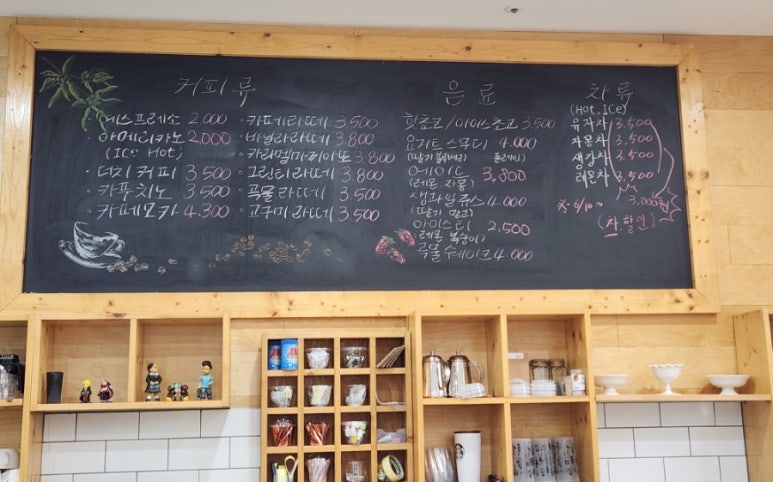 커피류
에스프레소 2.000
아메리카노 2.000
(Ice Hot)
더치커피 3.500
카푸치노 3.500
카페모카 4.300
카페라떼 3.500
바닐라라떼 3.800
카라멜마끼아또 3.800
그린티라떼 3.800
곡물라떼 3.500
고구마라떼 3.500
음료
핫쵸코/아이스쵸코 3.500
요거트스무디 4.000
(딸기 블루베리 플레인)
에이드 3.800
(레몬 자몽)
생과일쥬스 4.000
(딸기 망고)
아이스티 2.500
(레몬 복숭아)
곡물쉐이크 4.000
차류
(Hot.ICE)
유자차 3.500
자몽차 3.500
생강차 3.500
레몬차 3.500
3.000원
(차.할인)